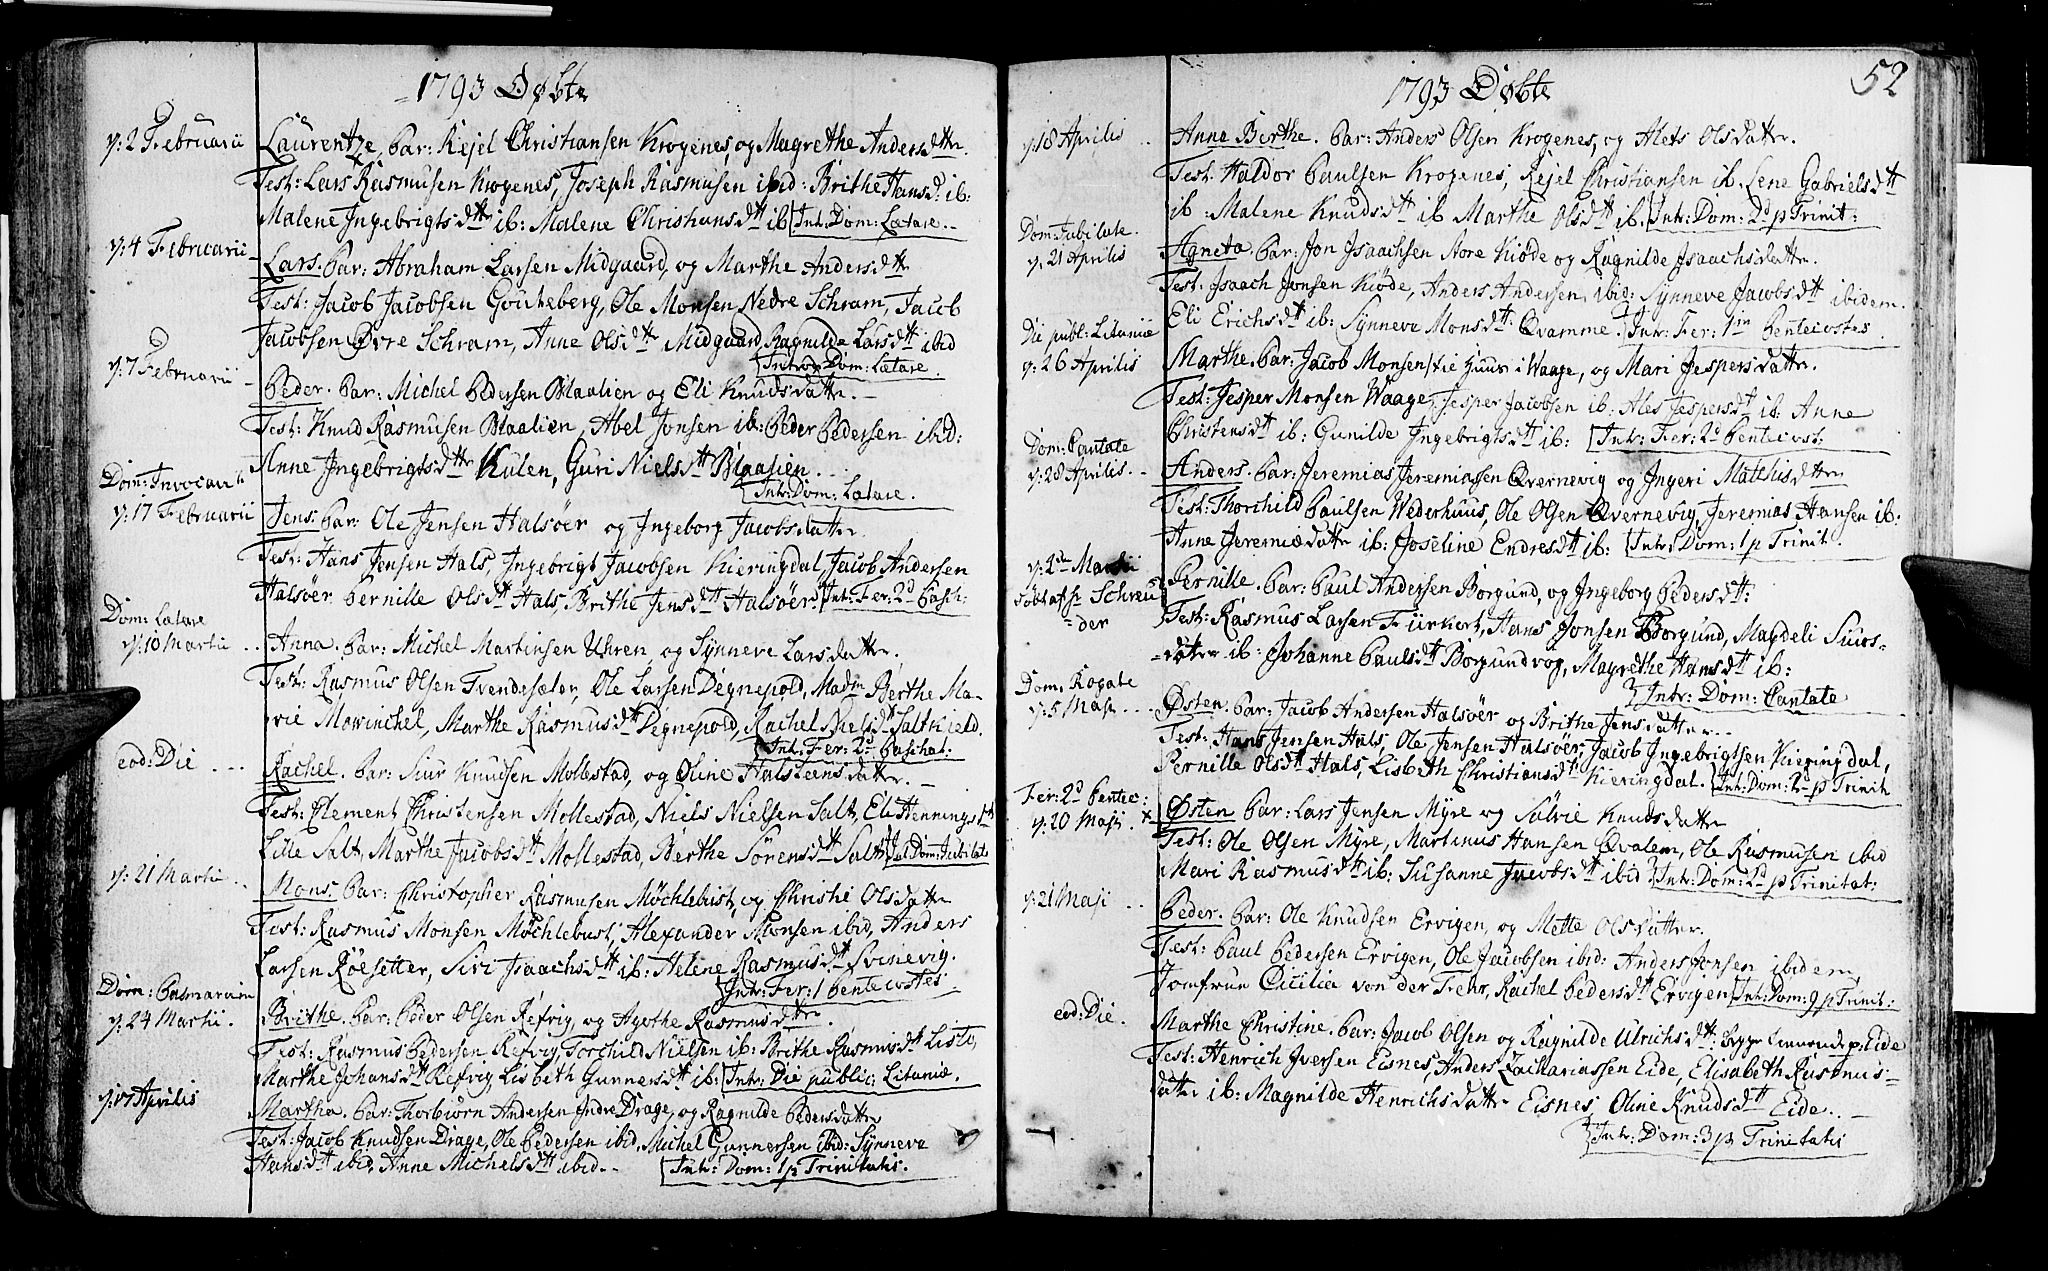 1793 Døbte
d: 2 Februarii
Laurentze, Par: Kejel Christiansen Krogenes, og Magrethe Andersdttr.
Test: Lars Rasmusen Krogenes, Joseph Rasmusen ibid: Brithe Hansd: ib:
Malene Ingebrigtsdttr ib: Malene Christiansdtt ib [Intr: Dom: Lætare.
d: 4 Februarii
Lars. Par: Abraham Larsen Midgaard, og Marthe Andersdttr
Test: Jacob Jacobsen Gouteberg, Ole Monsen Nedre Schram, Jacob
Jacobsen Øvre Schram, Anne Olsdttr Midgaard, Ragnilde Larsdtt ibid
[Introd: Dom: Lætare.
d: 7 Februarii
Peder. Par: Michel Pedersen Blaalien og Eli Knudsdattr.
Test: Knud Rasmusen Blaalien, Abel Jonsen ib: Peder Pedersen ibid:
Anne Ingebrigtsdttr Kulen, Guri Nielsdtt Blaalien.
[Intr: Dom: Lætare.
Dom: Invocavit
d: 17 Februarii
Jens. Par: Ole Jensen Halsøer og Ingeborg Jacobsdattr.
Test: Hans Jensen Hals, Ingebrigt Jacobsen Kieringdal, Jacob Andersen
Halsøer Pernille Olsdtt Hals, Brithe Jensdtt Halsøer. [Int: Fer: 2d Pasch:
Dom: Lætare
d: 10 Martii
Anna. Par: Michel Martinsen Uhren og Synneve Larsdattr.
Test: Rasmus Olsen Trendesæter, Ole Larsen Degnepold, Madm Berthe Ma-
rie Mowinchel, Marthe Rasmusdtt Degnepold, Rachel Nielsdtt Saltkield.
[Int: Fer: 2d Paschat:
eod: Die
Rachel. Par: Siur Knudsen Mollestad, og Oline Halsteensdattr.
Test: Clement Christensen Mollestad, Niels Nielsen Salt, Eli Henningsdtt
Lille Salt, Marthe Jacobsdtt Mollestad, Berthe Sørensdtt Salt [Int Dom: Jubilate
d: 21 Martii
Mons. Par: Christopher Rasmusen Møchlebust, og Christie Olsdattr
Test: Rasmus Monsen Møchlebust, Alexander Monsen ibid, Anders
Larsen Røesetter, Siri Isaachsdtt ib: Helene Rasmusdtt Svinevig.
[Intr: Fer: 1 Pentecostes
Dom: Palmarum
d: 24 Martii.
Brithe. Par: Peder Olsen Refvig, og Agethe Rasmusdttr.
Test: Rasmus Pedersen Refvig, Torchild Nielsen ib: Brithe Rasmusdtt Liste,
Marthe Johansdtt Refvig Lisbeth Gunnersdtt ib: [Intr: Die public: Litaniæ.
d: 17 Aprilis
Martha. Par: Thorbiørn Andersen Indre Drage, og Ragnilde Pedersdattr
Test: Jacob Knudsen Drage, Ole Pedersen ibid, Michel Gunnersen ibid: Synneve
Hansdtt ibid, Anne Michelsdtt ibid.. [Intr: Dom: 1 p Trinitatis.
52
1793 Døbte
d: 18 Aprilis
Anne Berthe. Par: Anders Olsen Krogenes, og Alets Olsdattr.
Test: Haldor Paulsen Krogenes, Kejel Christiansen ib. Lene Gabrielsdtt
ib: Malene Knudsdtt ib Marthe Olsdtt ib: [Intr: Dom: 2d p Trinit:
Dom: Jubilate
d: 21 Aprilis
Agneta. Par: Jon Isaachsen Store Kiøde og Ragnilde Isaachsdattr.
Test: Isaach Jonsen Kiøde, Anders Andersen ibid: Synneve Jacobsdtt ibidem.
Eli Erichsdtt ib: Synneve Monsdtt: Qvamme. [Intr: Fer: 1 Pentecostes
Die publ: Litaniæ
d: 26 Aprilis
Marthe. Par: Jacob Monsen i Waage, og Mari Jespersdattr.
Test: Jesper Monsen Waage, Jesper Jacobsen ib: Ales Jespersdtt ib: Anne
Christensdtt ib: Gunilde Ingebrigtsdtt ib: [Intr: Fer: 2d Pentecost:
Dom: Cantate
d: 28 Aprilis.
Anders. Par: Jeremias Jeremiasen Qvernevig og Ingeri Mathisdttr
Test: Thorchild Paulsen Wederhuus, Ole Olsen Qvernevig, Jeremias Hansen ib:
Anne Jeremiædattr ib: Joseline Endresdtt ib: [Intr: Dom: 1 p Trinit.
d: 2de Maii
døbt af Hr Schreu
=der
Pernille. Par: Paul Andersen Borgund, og Ingeborg Pedersdtt:
Test: Rasmus Larsen Furkert, Hans Jonsen Borgund, Magdeli Siurs-
-datter ib: Johanne Paulsdtt Borgundvog, Magrethe Hansdtt ib:
[Intr: Dom: Cantate
Dom: Rogate
d: 5 Maji
Østen. Par: Jacob Andersen Halsøer og Brithe Jensdatter.
Test: Hans Jensen Hals, Ole Jensen Halsøer, Jacob Ingebrigtsen Kieringdal,
Pernille Olsdtt Hals, Lisbeth Christiansdtt Kieringdal. [Int: Dom: 2d p Trinit
Fer: 2d Pentec:
d: 20 Maji.
Østen Par: Lars Jensen Myre og Sølvie Knudsdattr
Test: Ole Olsen Myre, Martinus Hansen Qvalem, Ole Rasmusen ibid
Mari Rasmusdtt ib: Susanne Jacobsdtt ibid [Intr: Dom: 2d p Trinitat:
d: 21 Maji
Peder. Par: Ole Knudsen Ervigen, og Mette Olsdatter.
Test: Paul Pedersen Ervigen, Ole Jacobsen ibid: Anders Jonsen ibidem,
Jomfrue Cicilia von der Fehr, Rachel Pedersdtt Ervigen [Int: Dom: 9 p Trinit:
eod: Die.
Marthe Christine. Par: Jacob Olsen og Ragnilde Ulrichsdtt: Eide
Test: Henrich Iversen Eisnes, Anders Zachariassen Eide, Elisabeth Rasmus-
dattr ib: Magnilde Henrichsdattr Eisnes, Oline Knudsdtt Eide.
[Intr: Dom: 3 p Trinitatis